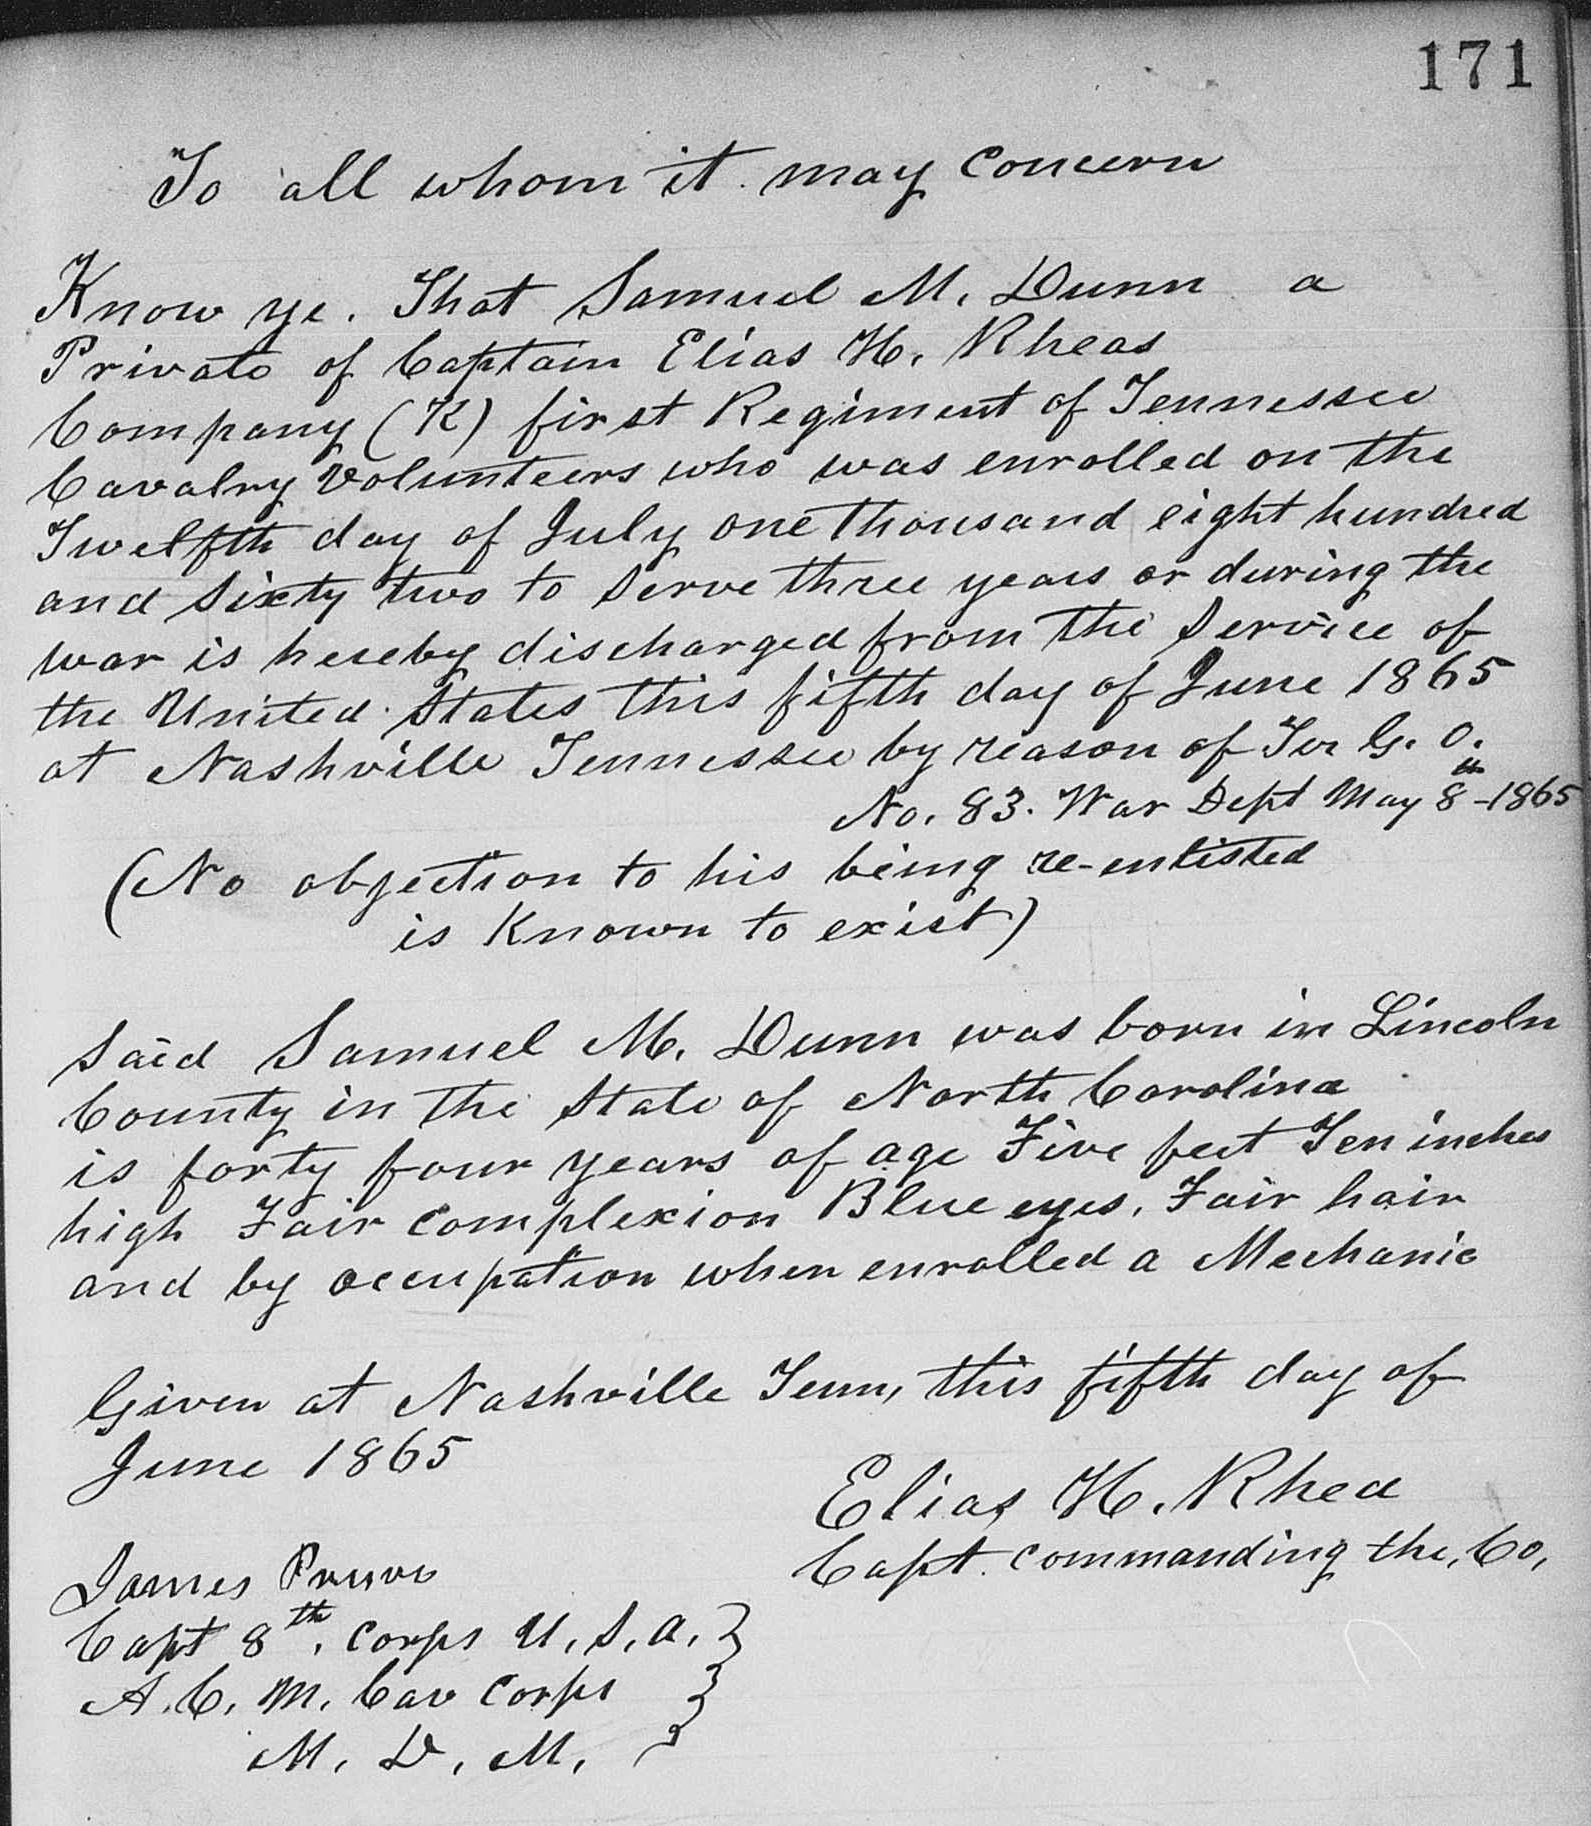 171
To all whom it may concern
Know ye. That Samuel M. Dunn a
Private of Captain Elias H. Rheas
Company (K) first Regiment of Tennessee
Cavalry Volunteers who was enrolled on the
Twelfth day of July one thousand eight hundred
and sixty two to serve three years or during the
war is hereby discharged from the service of
the United States this fifth day of June 1865
at Nashville Tennessee by reason of G. O.
No. 83. War Dept May 8th - 1865
(No objection to his being re-enlisted
is Known to exist)
Said Samuel M. Dunn was born in Lincoln
County in the State of North Carolina
is forty four years of age Five feet Ten inches
high Fair complexion Blue eyes, Fair hair
and by occupation when enrolled a Mechanic
Given at Nashville Tenn, this fifth day of
June 1865
Elias H. Rhea
Capt. commanding the, Co,
James
Capt 8th, Corps U, S, A,
A. C, M, Cav Corps
M, D, M,